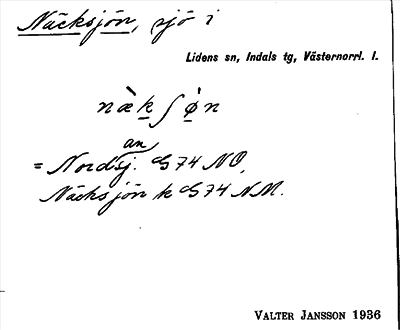 Näcksjön, sjö i
Lidens sn, Indals tg, Västernorrl. l.
næ̀kʃø̀n
an
= Nordsj. G74 NO,
Näcksjön k G74 NM.
VALTER JANSSON 1936